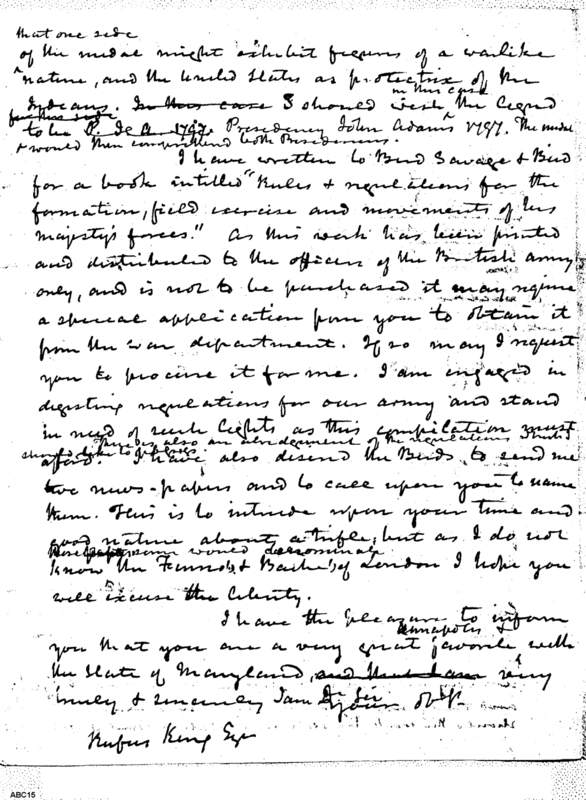 that one side
of the medal might exhibit figures of a warlike
nature, and the United States as protectrix of the
in this case
Indians. In this case I should wish the legend
for this side
to be P. I. A. 1797. Presidency John Adams 1797. The medal
& would then comprehend both Presidencies.
I have written to Bird Savage & Bird
for a book intitled "Rules & regulations for the
formation, field exercise and movements of his
majesty's forces." As this work has been printed
and distributed to the officers of the British army
only, and is not to be purchased it may require
a special application from you to obtain it
from the war department. If so may I request
you to procure it for me. I am engaged in
digesting regulations for our army and stand
in need of such lights as this compilation must
There is also an abridgement of the regulations I should
should like to possess
afford. I have also desired the Birds, to send me
two news-papers and to call upon you to name
them. This is to intrude upon your time and
good nature about a trifle; but as I do not
know the Fenno's & Bache's of London I hope you
will excuse the liberty.
I have the pleasure to inform
Annapolis &
you that you are a very great favorite with
the State of Maryland, and that I am very
truly & sincerely I am Dr Sir
your obt
Rufus King Esqr
ABC15